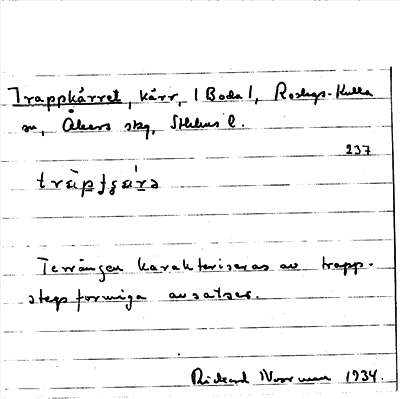 Trappkärret, kärr, | Boda |, Roslags-Kulla
sn, Åkers skg, Sthlms l.
237
Terrängen karakteriseras av trapp-
stegsformiga avsatser.
Rickard 1934.